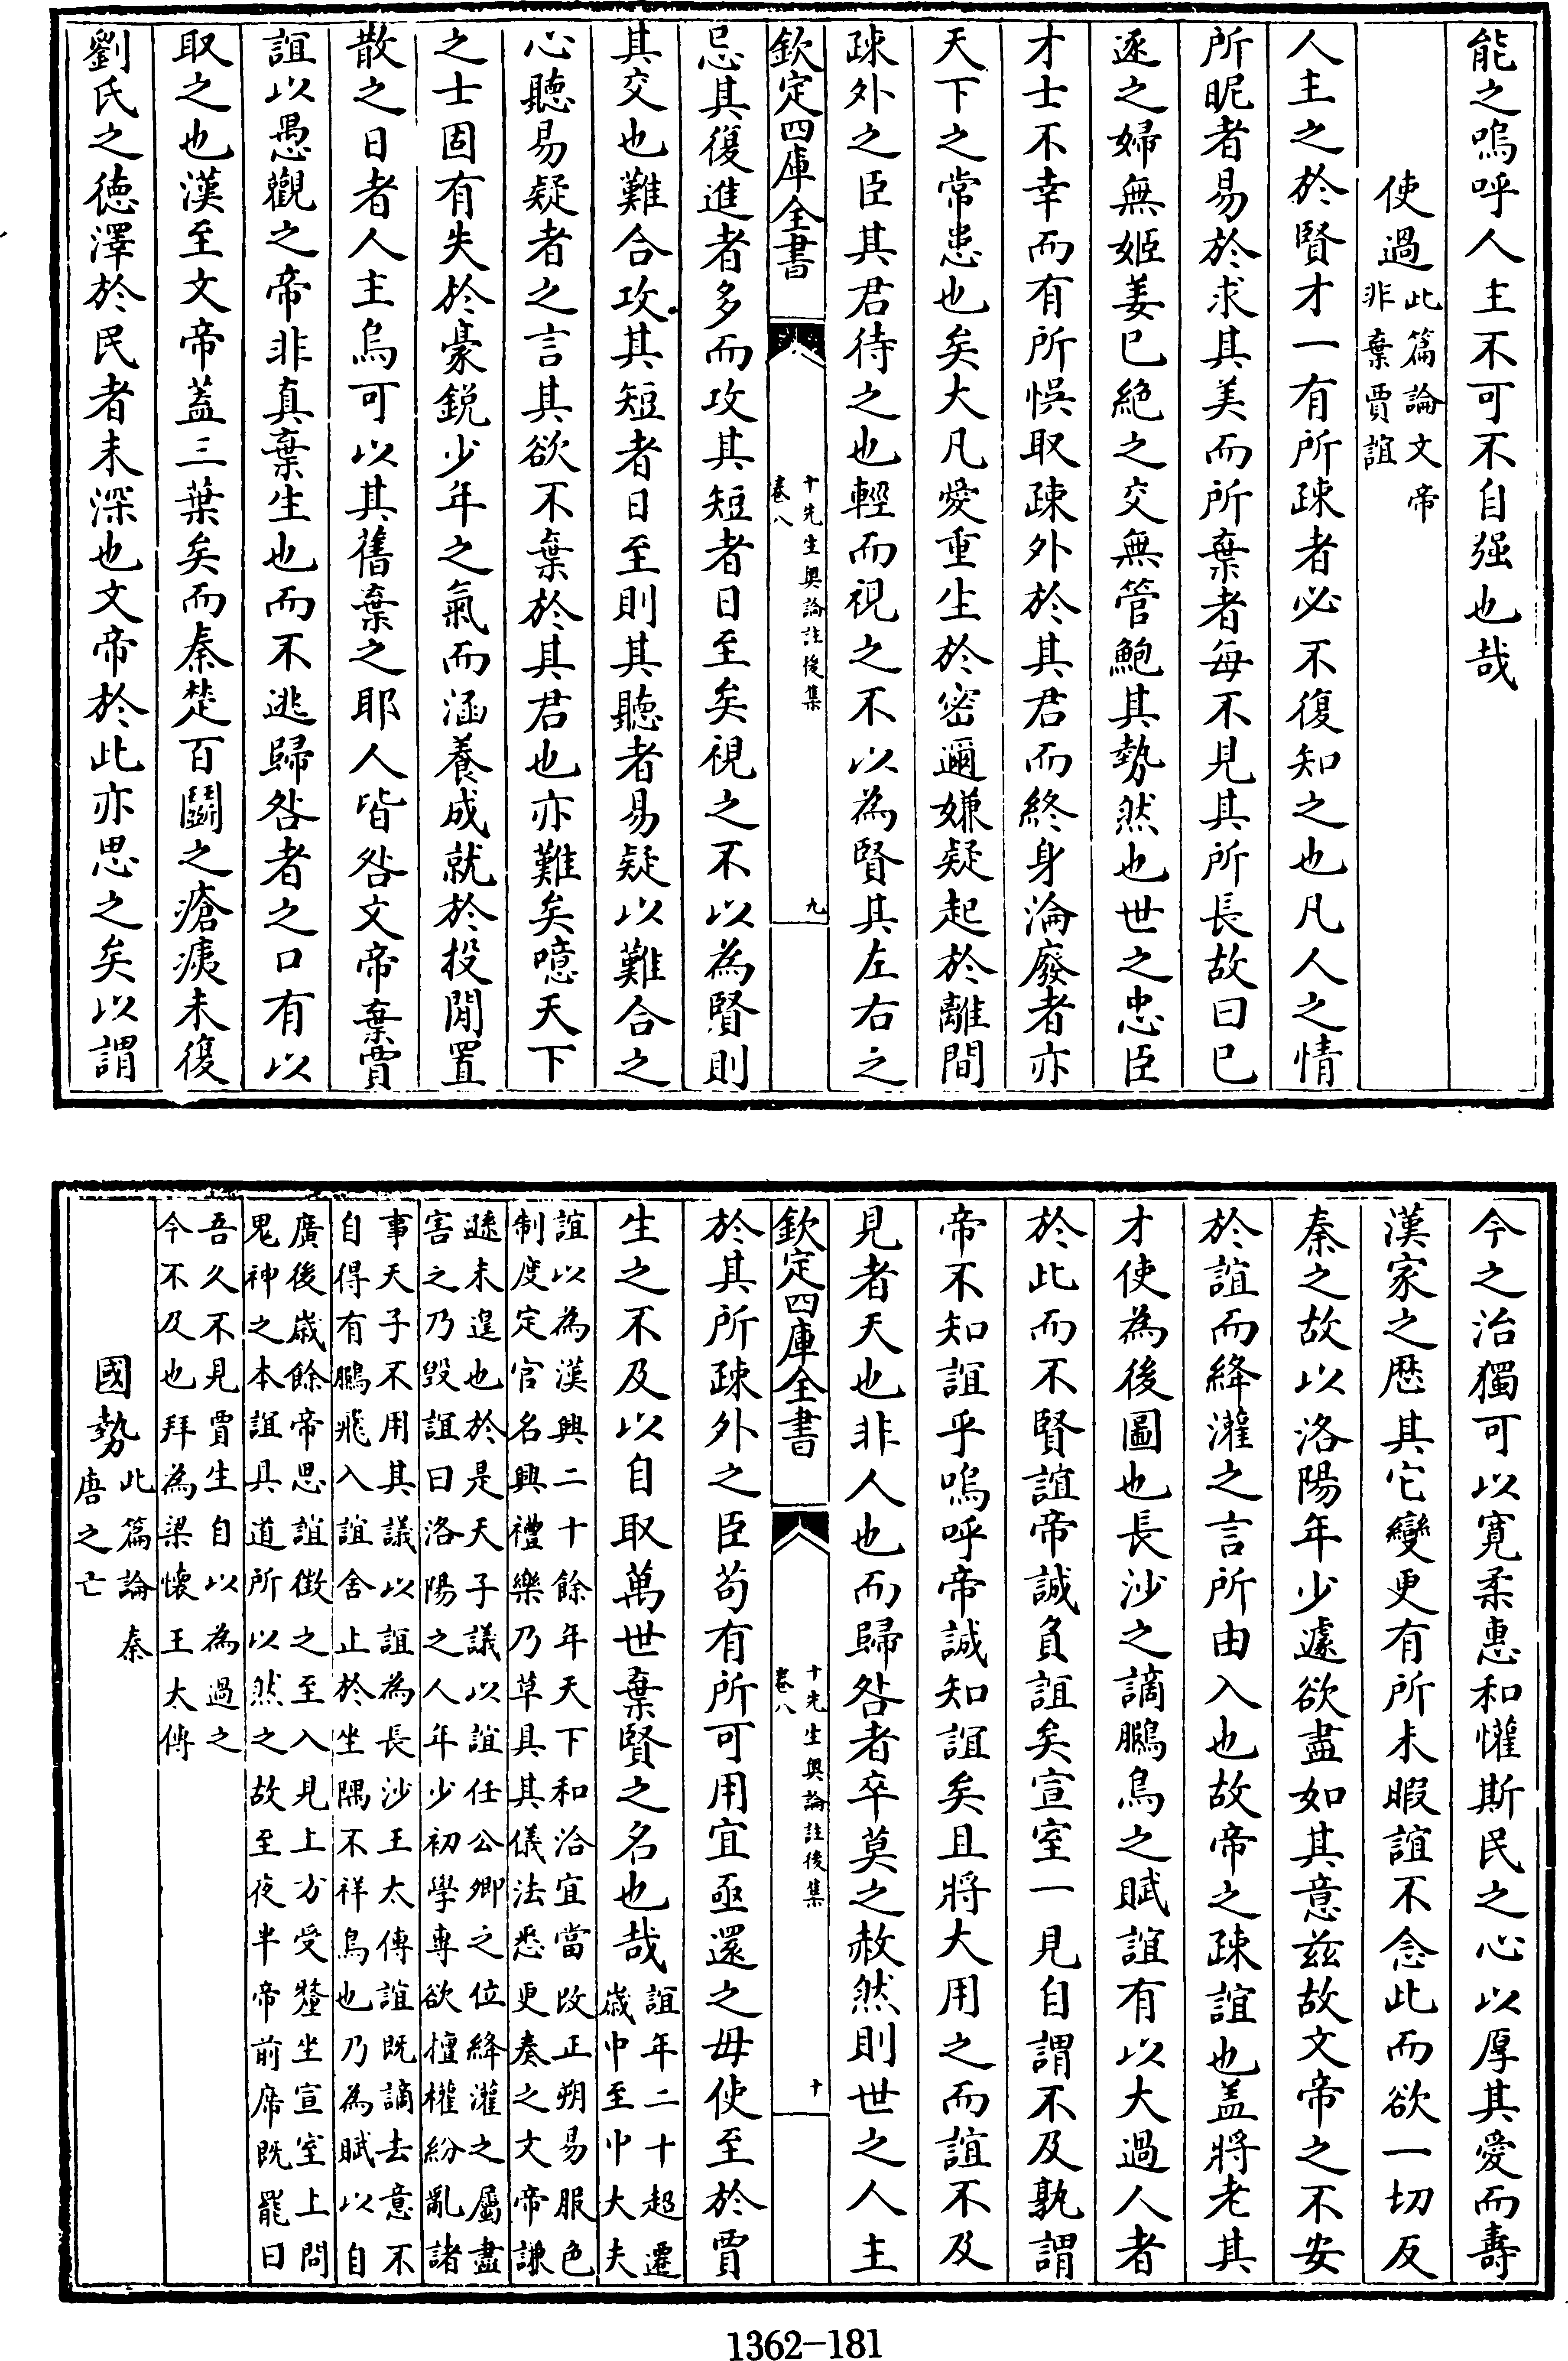 能之嗚呼人主不可不自强也哉
使過此篇論文帝
非棄賈誼
人主之於賢才一有所疎者必不復知之也凡人之情
所昵者易於求其美而所棄者每不見其所長故曰已
逐之婦無姬姜已絶之交無管鮑其勢然也世之忠臣
才士不幸而有所悞取疎外於其君而終身淪廢者亦
天下之常患也矣大凡愛重生於密邇嫌疑起於離間
疎外之臣其君待之也輕而視之不以為賢其左右之
欽定四庫全書
十先生奥論註後集
卷八
九
忌其復進者多而攻其短者日至矣視之不以為賢則
其交也難合攻其短者日至則其聽者易疑以難合之
心聽易疑者之言其欲不棄於其君也亦難矣噫天下
之士固有失於豪銳少年之氣而涵養成就於投閒置
散之日者人主烏可以其舊棄之耶人皆咎文帝棄賈
誼以愚觀之帝非真棄生也而不逃歸咎者之口有以
取之也漢至文帝蓋三葉矣而秦楚百鬭之瘡痍未復
劉氏之徳澤於民者未深也文帝於此亦思之矣以謂
今之治獨可以寛柔惠和懽斯民之心以厚其愛而壽
漢家之歴其它變更有所未暇誼不念此而欲一切反
秦之故以洛陽年少遽欲盡如其意兹故文帝之不安
於誼而絳灌之言所由入也故帝之疎誼也蓋將老其
才使為後圖也長沙之謫鵬鳥之賦誼有以大過人者
於此而不賢誼帝誠負誼矣宣室一見自謂不及孰謂
帝不知誼乎嗚呼帝誠知誼矣且將大用之而誼不及
見者天也非人也而歸咎者卒莫之赦然則世之人主
欽定四庫全書
十先生奥論註後集
卷八
十
於其所疎外之臣苟有所可用宜亟還之毋使至於賈
生之不及以自取萬世棄賢之名也哉誼年二十超遷
歳中至中大夫
誼以為漢興二十餘年天下和洽宜當改正朔易服色
制度定官名興禮樂乃草具其儀法悉更奏之文帝謙
遜未遑也於是天子議以誼任公卿之位絳灌之屬盡
害之乃毁誼曰洛陽之人年少初學專欲擅權紛亂諸
事天子不用其議以誼為長沙王太傅誼既謫去意不
自得有鵬飛入誼舍止於坐隅不祥鳥也乃為賦以自
廣後歳餘帝思誼徴之至入見上方受釐坐宣室上問
鬼神之本誼具道所以然之故至夜半帝前席既罷曰
吾久不見賈生自以為過之
今不及也拜為梁懐王太傅
國勢此篇論秦
唐之亡
1362-181